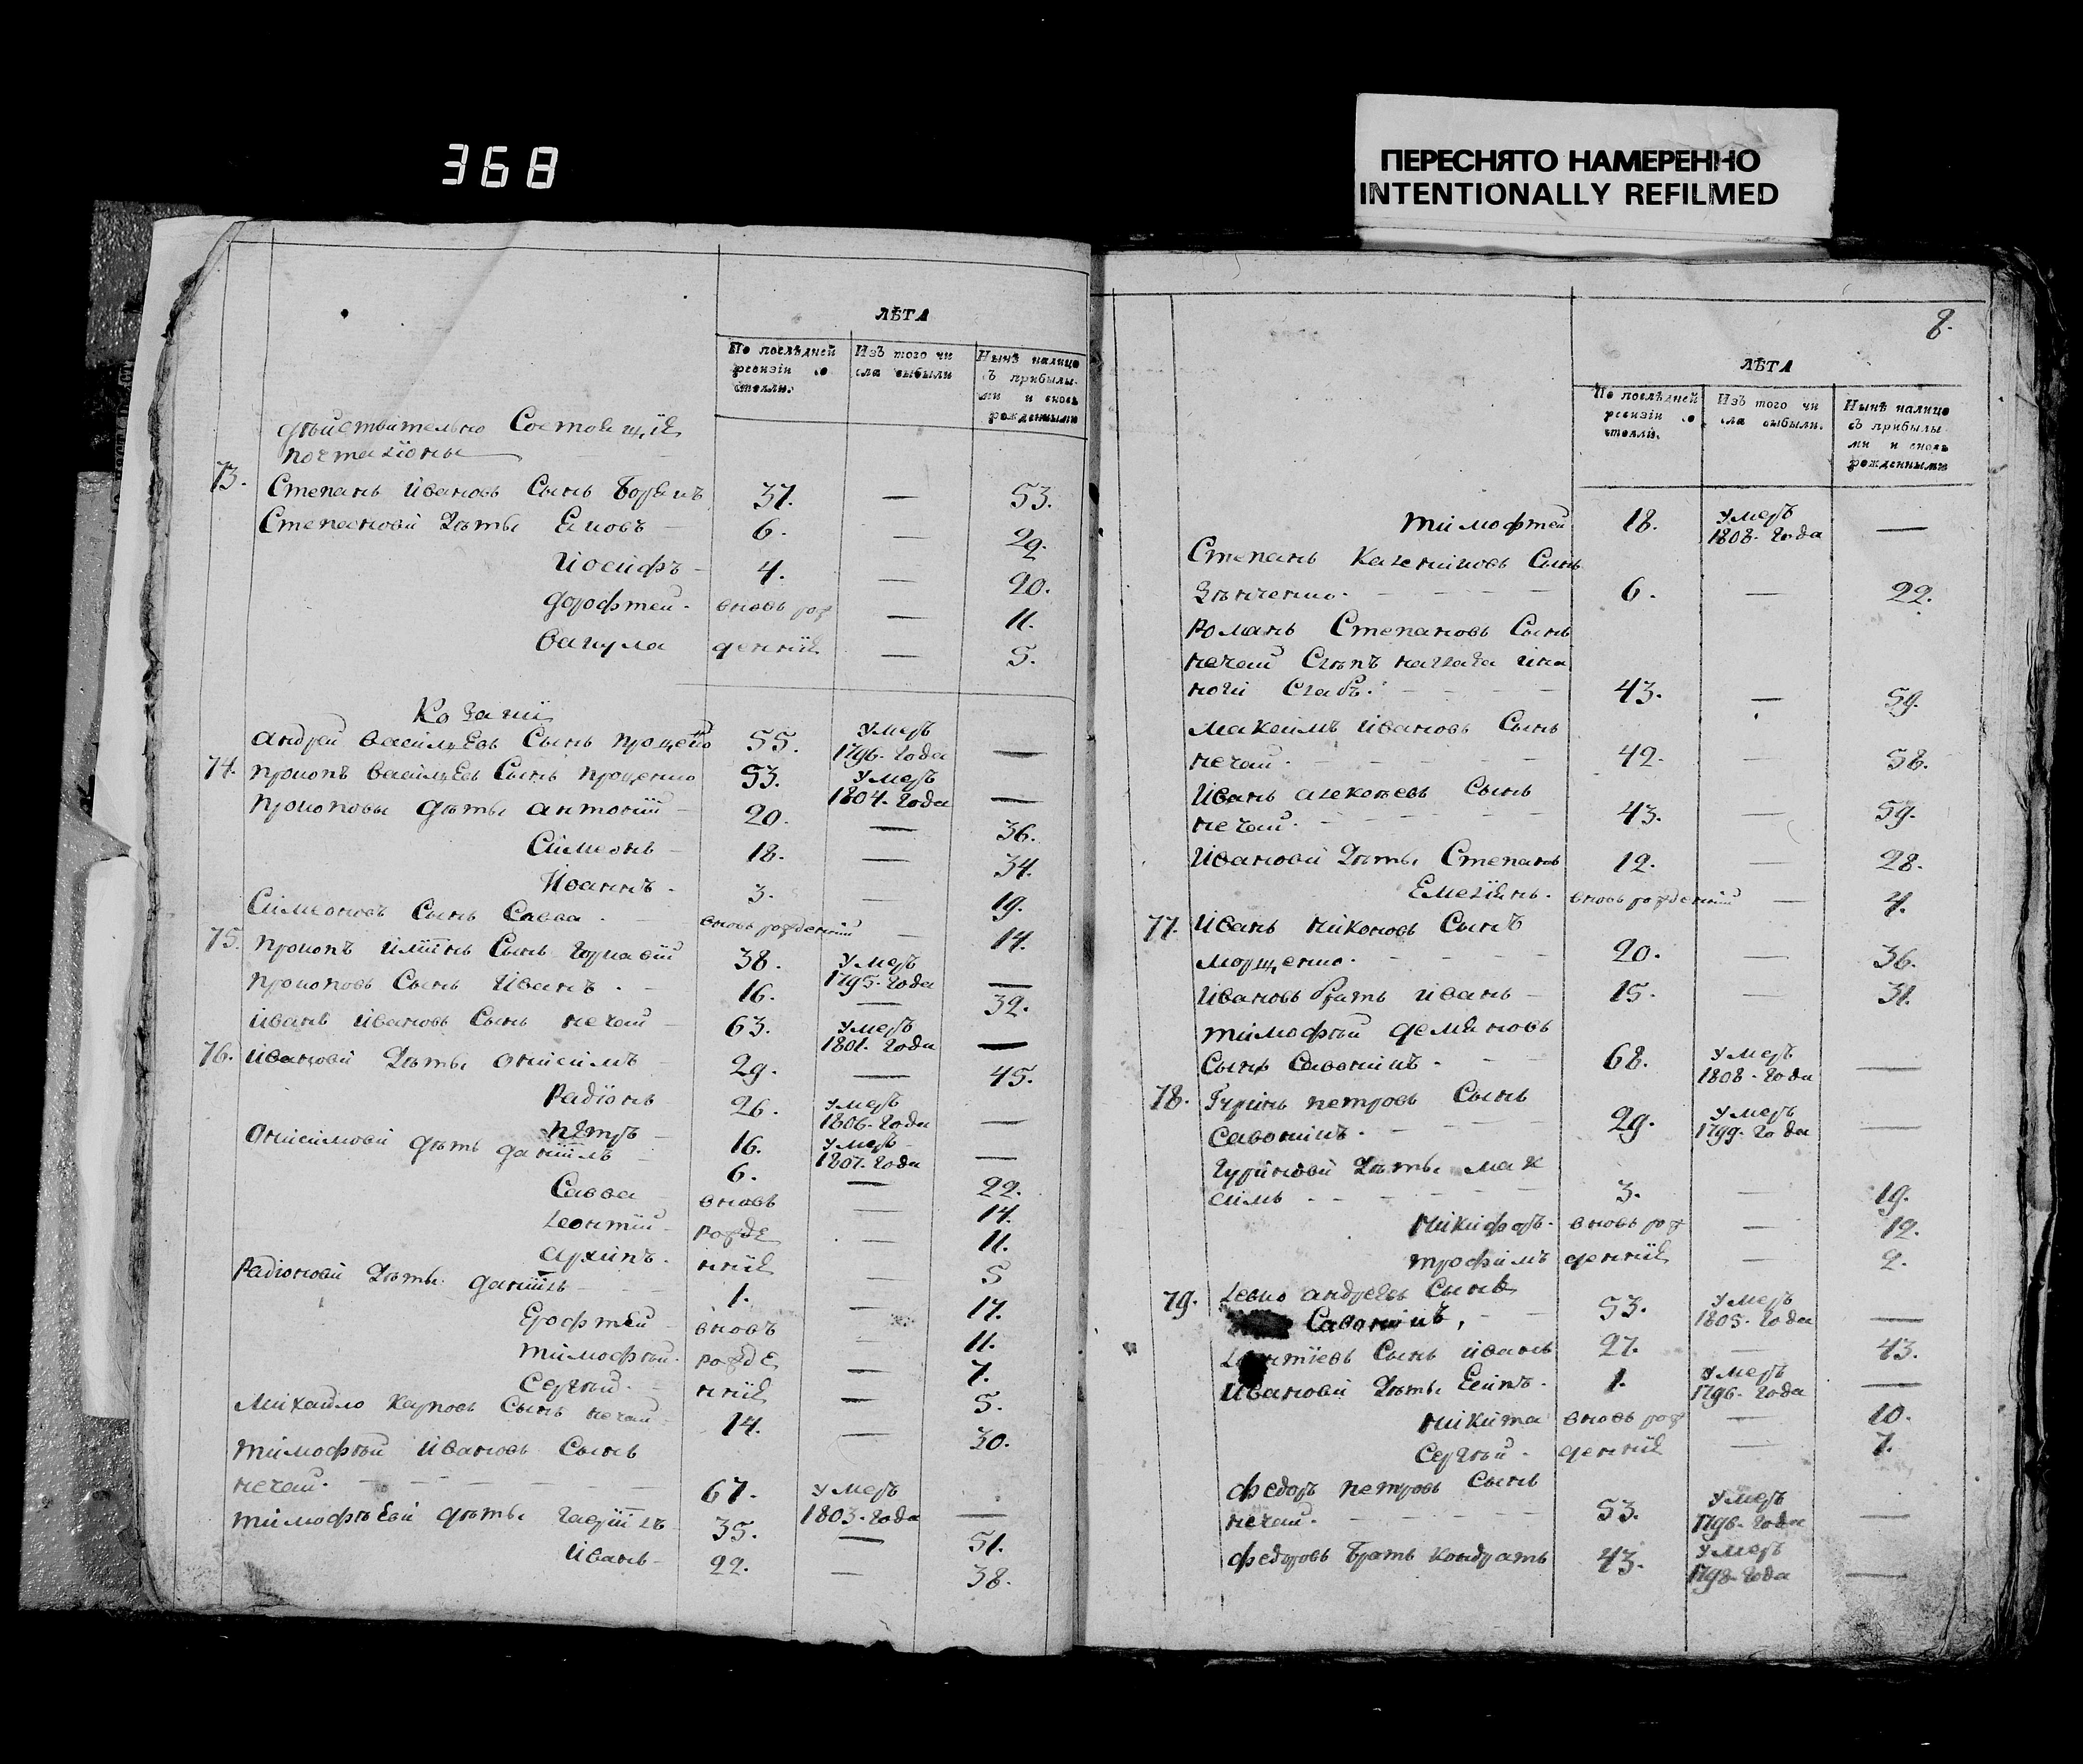 368
ПЕРЕСНЯТО НАМЕРЕННО
INTENTIONALLY REFILMED
ЛѢТА
По послѣдней ревизіи со стояли.
Изъ того чи сла выбыли
Нынѣ налицо съ прибылы- ми и вновь рожденными
дѣйствительно Состоящія
почталіоны
73. Степанъ Ивановъ Сынъ 37. — 53.
Степановы Дѣти Яковъ 6. — 29.
Иосифъ 4. — 20.
Дорофтей вновь рож — 11.
Вакула денніи — 5.
Козаки
Андрей Васильевъ Сынъ Проценко 55. умеръ 1796. Года —
74. Прокопъ Васильевъ Сынъ Проценко 53. умеръ 1804. Года —
Прокоповы дѣти Антоній 20. — 36.
Симеонъ 18. — 34.
Иоаннъ 3. — 19.
Симеоновъ Сынъ Савва вновь рожденній — 14.
75. Прокопъ Сынъ 38. умеръ 1795. Года —
Прокоповъ Сынъ Иванъ 16. — 32.
Иванъ Ивановъ Сынъ Нечай 63. умеръ 1801. Года —
76. Ивановы Дѣти Онисимъ 29. — 45.
Радіонъ 26. умеръ 1806. Года —
Петръ 16. умеръ 1807. Года —
Онисимовы дѣти Даніилъ 6. — 22.
Савва вновь — 14.
Леонтій рожде — 11.
Архипъ нніи — 5
Радіоновы Дѣти Даніилъ 1. — 17.
Ерофтей вновъ — 11.
Тимофѣй рожде — 7.
Сергѣй нніи — 5.
Михайло Карповъ Сынъ Нечай 14. — 30.
Тимофѣй Ивановъ Сынъ
Нечай 67. умеръ 1803. Года —
Тимофѣевы дѣти Гавріилъ 35. — 51.
Иванъ 22. — 38.
8.
ЛѢТА
По послѣдней ревизіи со стояли.
Изъ того чи сла выбыли.
Нынѣ налицо съ прибылы- ми и вновь рожденными
Тимофтей 18. умеръ 1808. Года —
Степанъ Сынъ
6. — 22.
Романъ Степановъ Сынъ
Нечай Слѣпъ на глаза и на
ноги Слабъ. 43. — 59.
Максимъ Ивановъ Сынъ
Нечай 42. — 58.
Иванъ Алексѣевъ Сынъ
Нечай 43. — 59.
Ивановы Дѣти Степанъ 12. — 28.
Емелiянъ вновь рожденній — 4.
77. Иванъ Никоновъ Сынъ
Мощенко 20. — 36.
Ивановъ братъ Иванъ 15. — 31.
Тимофѣй Демяновъ
Сынъ Савонинъ 68. умеръ 1808. Года —
78. Гуринъ Петровъ Сынъ
Савонинъ 29. умеръ 1799. Года —
Гуриновы Дѣти Мак
симъ 3. — 19.
Никифоръ вновь рож — 12.
Трофимъ денніи — 2.
79. Левко Андреевъ Сынъ
Савонинъ, 53. умеръ 1805. Года —
Леонтіевъ Сынъ Иванъ 27. — 43.
Ивановы Дѣти Есипъ 1. умеръ 1796. Года —
Никита вновь рож — 10.
Сергѣй денніи — 7.
Федоръ Петровъ Сынъ
Нечай 53. умеръ 1796. Года —
Федоровъ братъ Кондратъ 43. умеръ 1798. Года —